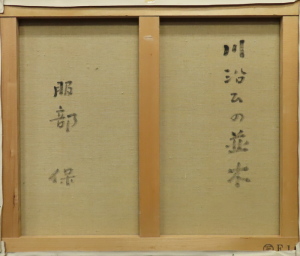 川沿ひの並木
服部 保